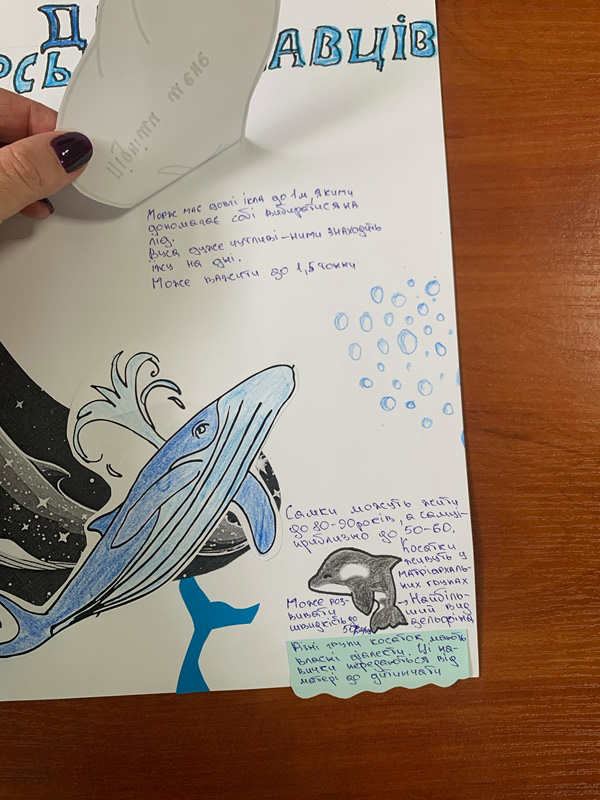 Д
РСЬ
АВЦІВ
Морж має довгі ікла до 1м, якими
допомагає собі вибиратися на
лід.
Вуса дуже чутливі – ними знаходить
їжу на дні.
Може важити до 1,5 тонни
Самки можуть жити
до 80-90 років, а самці-
приблизно до 50-60.
Косатки
живуть у
матріархаль-
них групах
Може роз-
вивати
швидкість до
→ Найбіль-
ший вид
дельфіна
Різні групи косаток мають
власні діалекти. Ці на-
вички передаються від
матері до дитинчати